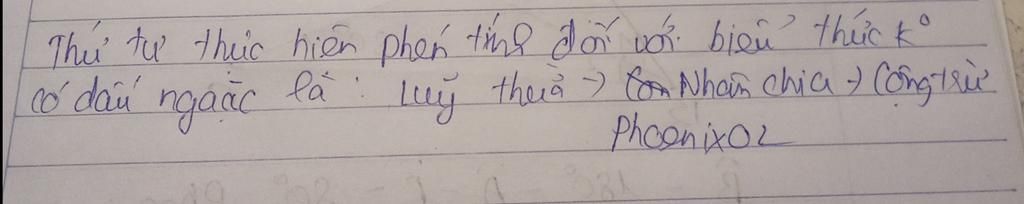 Thứ tự thực hiện phép tính đối với biểu thức k°
có dấu ngoặc là: Luỹ thừa → Nhân chia → Cộng trừ
Phoenix02